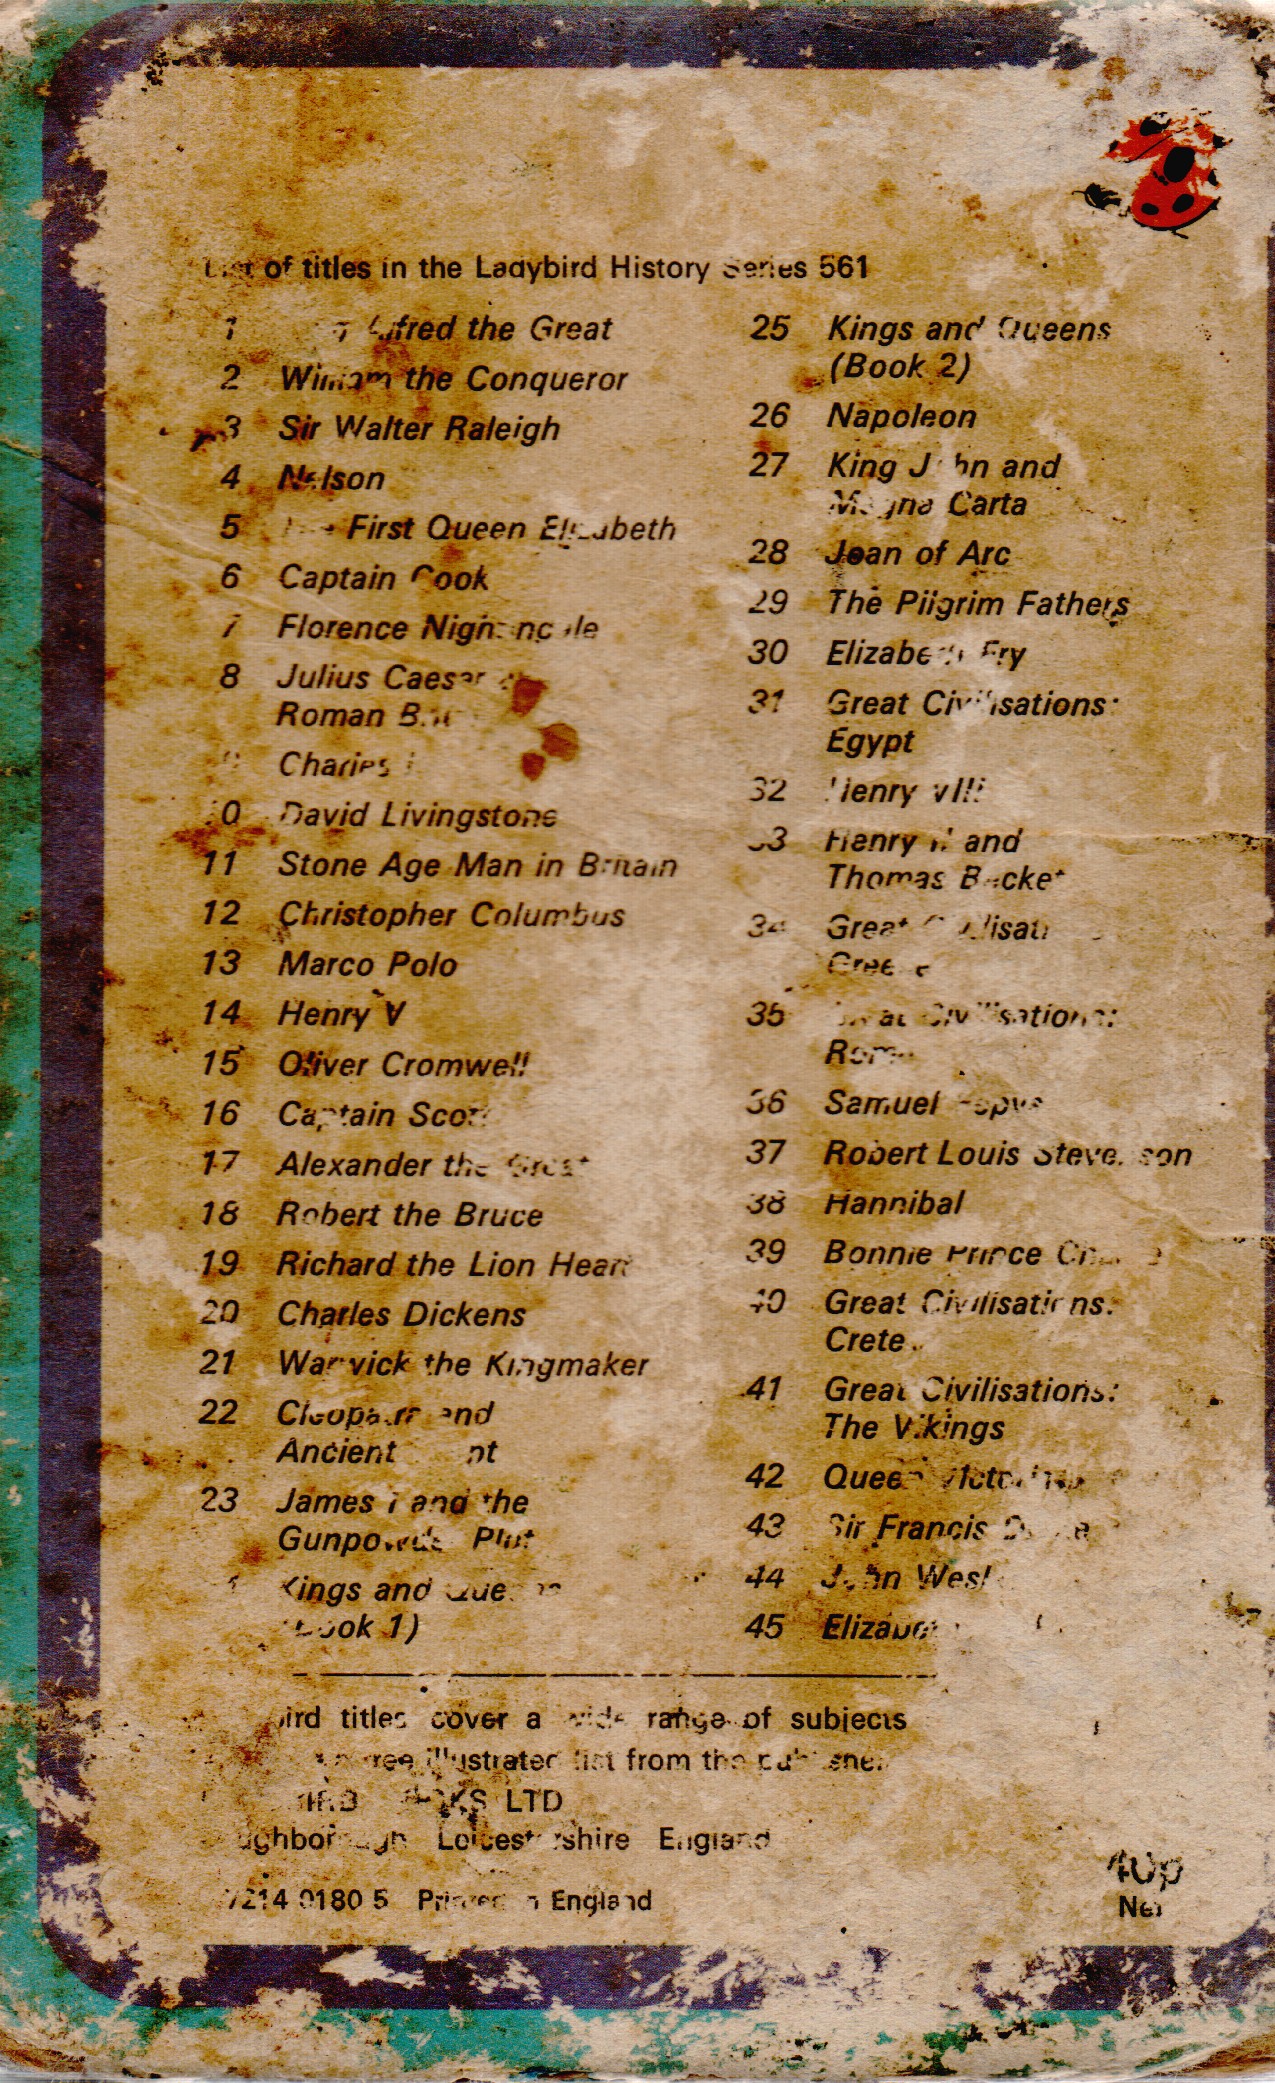 List of titles in the Ladybird History Series 561
1 Alfred the Great
2 William the Conqueror
3 Sir Walter Raleigh
4 Nelson
5 The First Queen Elizabeth
6 Captain Cook
7 Florence Nightingale
8 Julius Caesar
Roman
9 Charles
10 David Livingstone
11 Stone Age Man in Britain
12 Christopher Columbus
13 Marco Polo
14 Henry V
15 Oliver Cromwell
16 Captain Scott
17 Alexander the Great
18 Robert the Bruce
19 Richard the Lion Heart
20 Charles Dickens
21 Warwick the Kingmaker
22 Cleopatra and
Ancient
23 James I and the
Gunpowder Plot
Kings and Queens
(Book 1)
25 Kings and Queens
(Book 2)
26 Napoleon
27 King John and
Magna Carta
28 Joan of Arc
29 The Pilgrim Fathers
30 Elizabeth Fry
31 Great Civilisations:
Egypt
32 Henry VIII
33 Henry II and
Thomas Becket
34 Great Civilisations
Greece
35 Great Civilisations:
Rome
36 Samuel Pepys
37 Robert Louis Stevenson
38 Hannibal
39 Bonnie Prince
40 Great Civilisations:
Crete
41 Great Civilisations:
The Vikings
42 Queen Victoria
43 Sir Francis Drake
44 John
45
titles cover a wide range of subjects
free illustrated list from the publishers
BOOKS LTD
Loughborough Leicestershire England
7214 0180 5 Printed in England
40p
Net